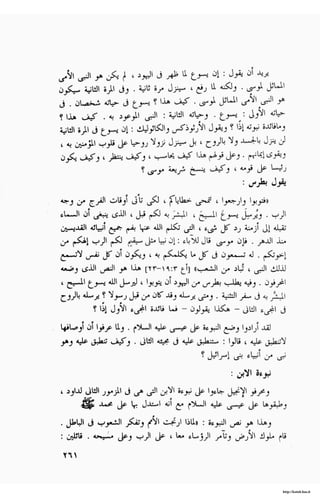 يريد أن يقول : إن يسوع ظهر في اليهود ، و لم يكن هو النبي الأمي
المماثل لموسى . ولكنه لما رفع ، سينزل مرة ثانية . وفي المرة الثانية سيكون
هو النبي الأمي المماثل لموسى . كيف هذا ؟ يسوع في حياته شخصان . في
حياته الأولى : يسوع . وحياته الثانية : النبي الموعود به . كيف هذا ؟
وما فائدة نبوته إذا ؟ ويقول الأرثوذكس والكاثوليك : إن يسوع في المرة الثانية
لن ينزل بالجسد ولا بالروح ، بل سينزل نزولا حياً على قلوب المؤمنين به ،
ويقوى إيمانهم . وعلى قولهم هذا كيف يحاسب ، وكيف ينتظر ، وكيف يكون
رئيساً على قومه ، وكيف ينسخ شريعة موسى ؟
يقول بطرس :
«فتوبوا وارجعوا ، لتمحى خطاياكم ، لكي تأتى أوقات الفرج من وجه
الرب . ويُرسِل يسوع المسيح ، المبشَّر به لكم قبل ، الذي ينبغى أن السماء
تقبله إلى أزمنة رد كل شيء ، التي تكلم عنها الله بفم جميع أنبيائه القديسين
منذ الدهر . فإن موسى قال للآباء : إن نبياً مثلى سيقيم لكم الرب إلهكم من
إخوتكم . له تسمعون في كل ما يكلمكم به ، ويكون أن كل نفس لا تسمع
لذلك النبي ، تُباد من الشعب» (أع ٣ : ١٩-٢٣) هذا هو النص الذي وضعه
المحرفون . وفيه يطلب بطرس من اليهود أن يتوبوا ، ليرسل الله يسوع المسيح ،
المبشَّر به في سفر التثنية . ومتى يرسله . وقد كان من قبل رسولاً ؟ يرسله بالروح
في المجيء الثاني - هكذا يقولون - فما فائدة المجيء الأول إذاً ؟
لقد أرادوا وضع النبوءة على عيسى عليه السلام . ولما عرفوا أن أوصافها
لا تنطبق عليه ، قالوا : ستنطبق عليه في مجيئه الثاني . كيف تنطبق عليه وهو
من نبى أنبياء بنى إسرائيل ؟
نبوءة الابن :
ومحرفو الإنجيل جاءوا على نبوءة الابن التي هي في المزمور الثاني لداود ،
وطبقوها على عيسى عليه السلام مع أنه استدل بها على محمد ﷺ
وهذا هو نص النبوءة : «لماذا ارتجت الأمم وتفكر الشعوب في الباطل .
قام ملوك الأرض وتآمر الرؤساء معا ، على الرب وعلى مسيحه . قائلين :
٢٦١
http://kotob.has.it